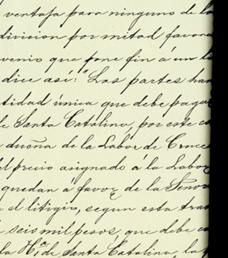 ventaja para ninguno de la
division por mitad favore
venio que pone fin á un l
dice así: Las partes han
tidad única que debe pagar
de Santa Catalina, por este co
dueña de la Labor de Cruces
el precio asignado á la Labor
quedan á favor de la Señora
el litigio, segun esta tran
seis mil pesos, que debe
la H.ª de Santa Catalina, la